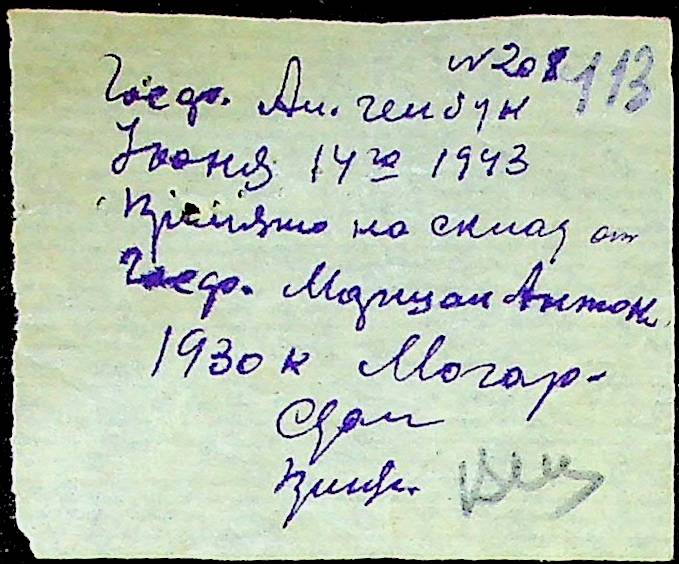 № 208 113
Гоедр. Ал. гембук
Июня 14го 1943
Прийнято на склад от
Гоедр. Марицан Антон
1930 к Могар-
Сдал
Прин.